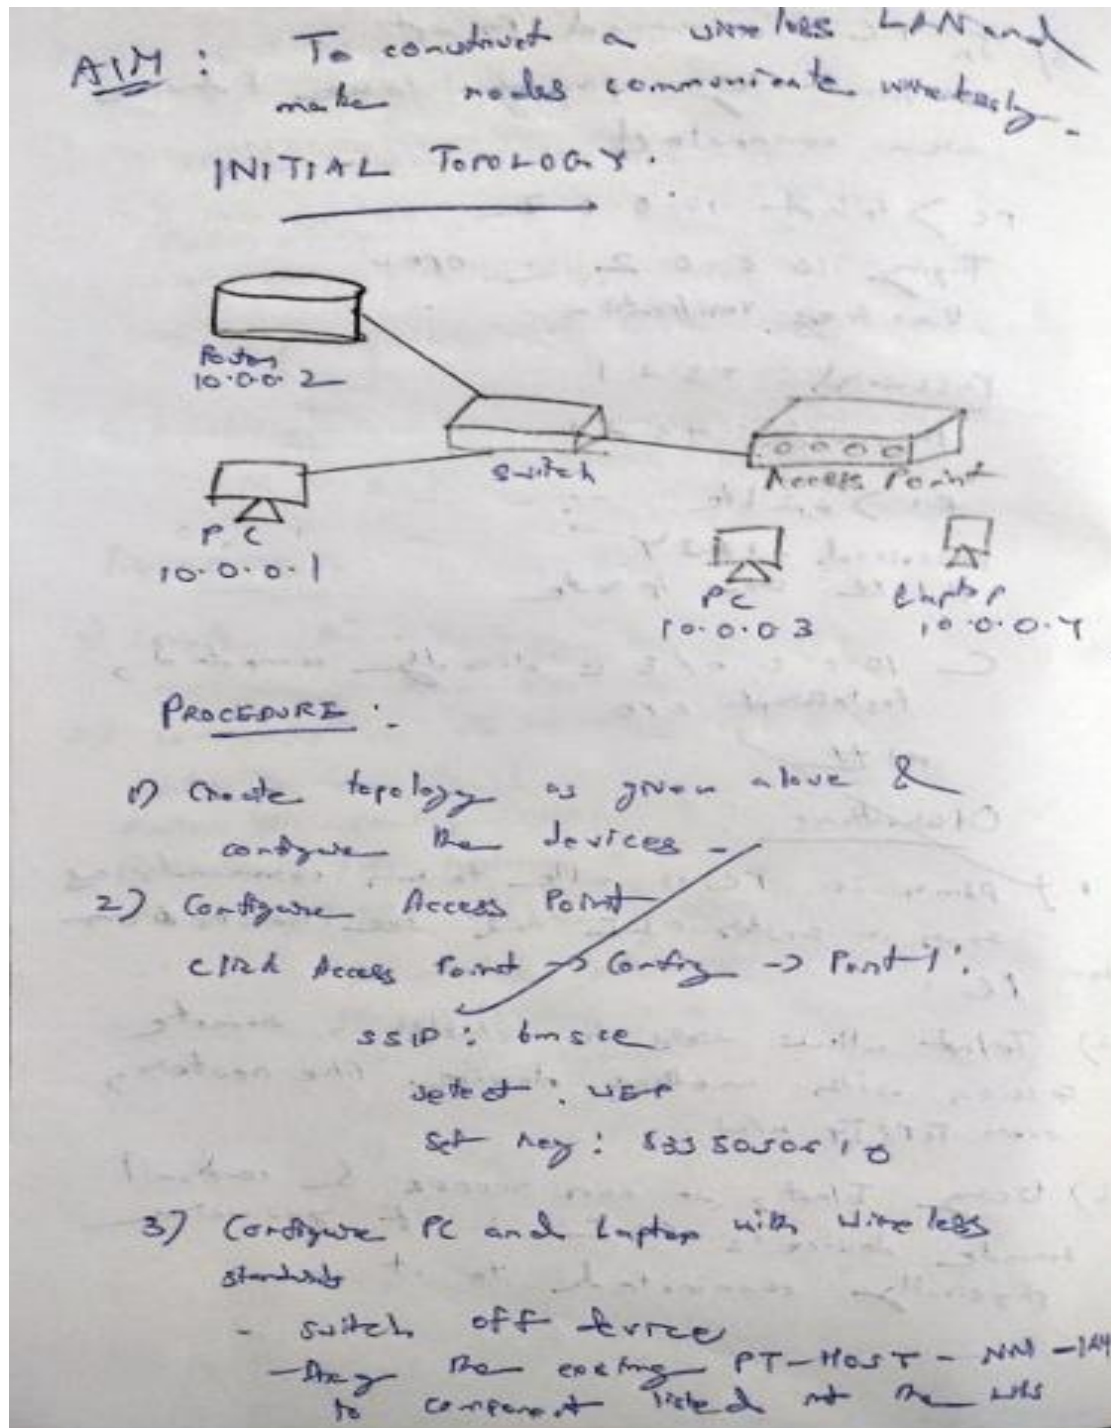 AIM : To construct a wireless LAN and
make nodes communicate wirelessly.
INITIAL TOPOLOGY.
Router
10.0.0.2
Switch
Access Point
PC
10.0.0.1
PC
10.0.0.3
Laptop
10.0.0.4
PROCEDURE :
1) Create topology as given above &
configure the devices
2) Configure Access Point
Click Access Point -> Config -> Port 1 :
SSID : bmsce
select : WEP
Set key :
3) Configure PC and Laptop with wireless
standards
- switch off device
- Drag the existing PT-HOST-NM-1AM
to component listed at the LHS